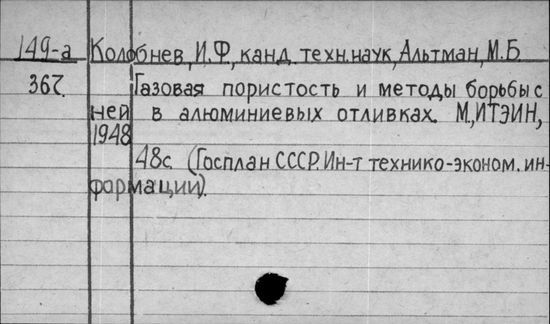 149-а Колобнев, И.Ф., канд. техн. наук, Альтман, М.Б.
367. Газовая пористость и методы борьбы с
ней в алюминиевых отливках. М., ИТЭИН,
1948
48с. (Госплан СССР. Ин-т технико-эконом. ин-
формации).